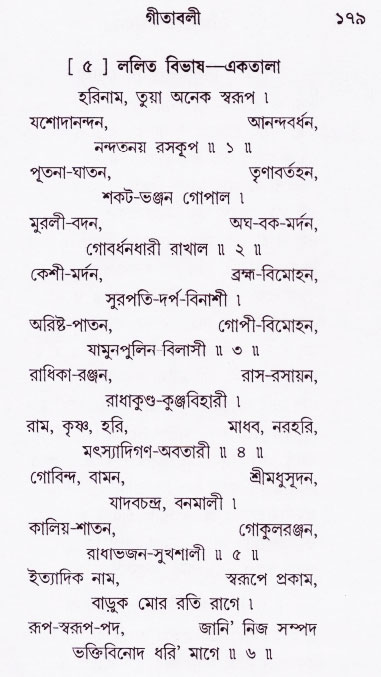 গীতাবলী ১৭৯
[ ৫ ] ললিত বিভাষ—একতালা
হরিনাম, তুয়া অনেক স্বরূপ ।
যশোদানন্দন, আনন্দবর্ধন,
নন্দতনয় রসকূপ ॥ ১ ॥
পূতনা-ঘাতন, তৃণাবর্তহন,
শকট-ভঞ্জন গোপাল ।
মুরলী-বদন, অঘ-বক-মর্দন,
গোবর্ধনধারী রাখাল ॥ ২ ॥
কেশী-মর্দন, ব্রহ্ম-বিমোহন,
সুরপতি-দর্প-বিনাশী ।
অরিষ্ট-পাতন, গোপী-বিমোহন,
যামুনপুলিন-বিলাসী ॥ ৩ ॥
রাধিকা-রঞ্জন, রাস-রসায়ন,
রাধাকুণ্ড-কুঞ্জবিহারী ।
রাম, কৃষ্ণ, হরি, মাধব, নরহরি,
মৎস্যাদিগণ-অবতারী ॥ ৪ ॥
গোবিন্দ, বামন, শ্রীমধুসূদন,
যাদবচন্দ্র, বনমালী ।
কালিয়-শাতন, গোকুলরঞ্জন,
রাধাভজন-সুখশালী ॥ ৫ ॥
ইত্যাদিক নাম, স্বরূপে প্রকাম,
বাড়ুক মোর রতি রাগে ।
রূপ-স্বরূপ-পদ, জানি’ নিজ সম্পদ
ভক্তিবিনোদ ধরি’ মাগে ॥ ৬ ॥